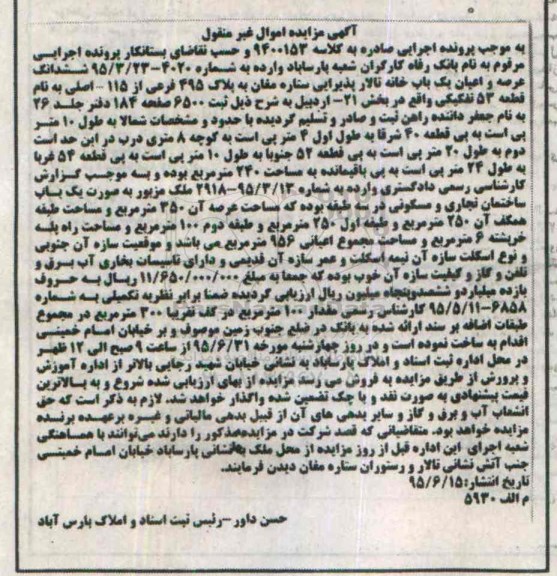 آگهی مزایده اموال غیر منقول
به موجب پرونده اجرایی صادره به کلاسه ۹۴۰۰۱۵۳ و حسب تقاضای بستانکار پرونده اجرایی
مرقوم به نام بانک رفاه کارگران شعبه پارساباد وارده به شماره ۴۰۲۰-۹۵/۳/۲۳ ششدانگ
عرصه و اعیان یک باب خانه تالار پذیرایی ستاره مغان به پلاک ۴۹۵ فرعی از ۱۱۵ - اصلی به نام
قطعه ۵۳ تفکیکی واقع در بخش ۲۱- اردبیل به شرح ذیل ثبت ۶۵۰۰ صفحه ۱۸۴ دفتر جلد ۲۶
به نام جعفر داننده راهن ثبت و صادر و تسلیم گردیده با حدود و مشخصات شمالا به طول ۱۰ متر
پی است به پی قطعه ۴۰ شرقا به طول اول ۴ متر پی است به کوچه ۸ متری درب در این حد است
دوم به طول ۲۰ متر پی است به پی قطعه ۵۲ جنوبا به طول ۱۰ متر پی است به پی قطعه ۵۴ غربا
به طول ۲۴ متر پی است به پی باقیمانده به مساحت ۲۴۰ مترمربع بوده و بسه موجب گزارش
کارشناسی رسمی دادگستری وارده به شماره ۲۹۱۸-۹۵/۳/۱۳ ملک مزبور به صورت یک باب
ساختمان تجاری و مسکونی در سه طبقه بوده که مساحت عرصه آن ۳۵۰ مترمربع و مساحت طبقه
همکف آن ۲۵۰ مترمربع و طبقه اول ۲۵۰ مترمربع و طبقه دوم ۱۰۰ مترمربع و مساحت راه پله
خرپشته ۶ مترمربع و مساحت مجموع اعیانی ۹۵۶ مترمربع می باشد و موقعیت سازه آن جنوبی
و نوع اسکلت سازه آن نیمه اسکلت و عمر سازه آن قدیمی و دارای تاسیسات بخاری آب برق و
تلفن و گاز و کیفیت سازه آن خوب بوده که جمعا به مبلغ ۱۱/۶۵۰/۰۰۰/۰۰۰ ریال به حروف
یازده میلیارد و ششصدوپنجاه میلیون ریال ارزیابی گردیده ضمنا برابر نظریه تکمیلی به شماره
۶۸۵۸-۹۵/۵/۱۱ کارشناس رسمی مقدار ۱۰۰ مترمربع در کف تقریبا ۳۰۰ مترمربع در مجموع
طبقات اضافه بر سند ارائه شده به بانک در ضلع جنوب زمین موصوف و بر خیابان امام خمینی
اقدام به ساخت نموده است و در روز چهارشنبه مورخه ۹۵/۶/۳۱ از ساعت ۹ صبح الی ۱۲ ظهر
در محل اداره ثبت اسناد و املاک پارساباد به نشانی خیابان شهید رجایی بالاتر از اداره آموزش
و پرورش از طریق مزایده به فروش می رسد مزایده از بهای ارزیابی شده شروع و به بالاترین
قیمت پیشنهادی به صورت نقد و یا چک تضمین شده واگذار خواهد شد. لازم به ذکر است که حق
انشعاب آب و برق و گاز و سایر بدهی های آن از قبیل بدهی مالیاتی و غیره برعهده برنده
مزایده خواهد بود. متقاضیانی که قصد شرکت در مزایده مذکور را دارند می توانند با هماهنگی
شعبه اجرای این اداره قبل از روز مزایده از محل ملک به نشانی پارساباد خیابان امام خمینی
جنب آتش نشانی تالار و رستوران ستاره مغان دیدن فرمایند.
تاریخ انتشار: ۹۵/۶/۱۵
م الف ۵۹۳۰
حسن داور-رئیس ثبت اسناد و املاک پارس آباد